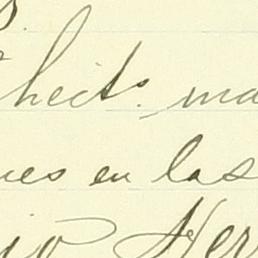 hects. ma
ues en las
io Her